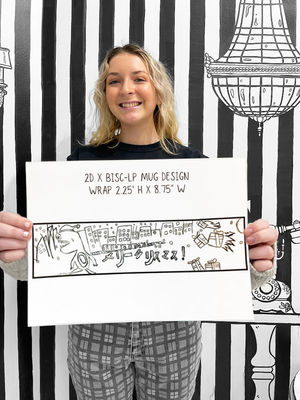 2D X BISC-LP MUG DESIGN
WRAP 2.25" H X 8.75" W
メリークリスマス!